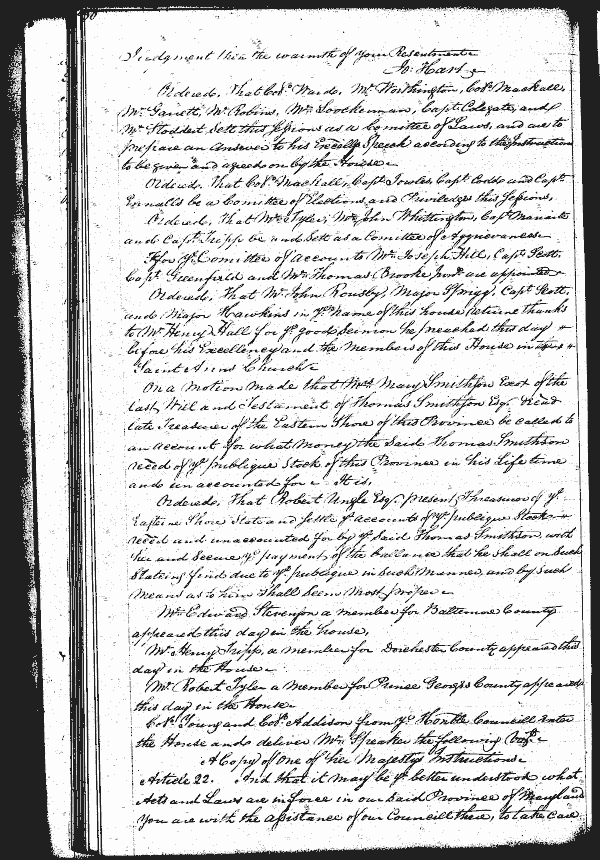 Judgment then the warmth of your Resentment
Jo. Hart
Ordered, That Col. Ward, Mr. Worthington, Col. Mackall,
Mr. Garrett, Mr. Robins, Mr. Loockerman, Capt. Colegate, and
Mr. Stoddert Sett this Sessions as a Comittee of Laws, and are to
prepare an Answer to his Excellys Speech according to the Instructions
to be given and agreed on by the House
Ordered, That Col. Mackall, Capt. Fowler, Capt. and Capt.
Ennalls be a Comittee of Elections and Priviledges this Sessions,
Ordered, That Mr. Tyler, Mr. John Whittington, Capt. Mariarte
and Capt. Tripp be and Sett as a Comittee of Aggrievances
For ye Comittee of Accounts Mr. Joseph Hill, Capt. Scott,
Capt. Greenfield and Mr. Thomas Brooke are appointed
Ordered, That Mr. John Rousby, Major Sprigg, Capt. Scott,
and Major Hawkins in ye Name of this house returne thanks
to Mr. Henry Hall for ye good Sermon he preached this day
before his Excellency and the Members of this House in
Saint Anns Church
On a Motion made that Mrs. Mary Smithson Execx of the
last Will and Testament of Thomas Smithson Esqr. dead
late Treasurer of the Eastern Shore of this Province be called to
an account for what Money the said Thomas Smithson
reced of ye publique Stock of this Province in his Life time
and unaccounted for It is,
Ordered, That Robert Ungle Esqr. present Threasurer of ye
Easterne Shore State and settle ye accounts of ye publique Stock
reced and unaccounted for by ye said Thomas Smithson with
her and Secure ye payment of the ballance that he shall on Such
Stateing find due to ye publique in Such Manner, and by Such
means as to him shall Seem Most proper
Mr. Edward Stevenson a member for Baltimore County
appeared this day in the house,
Mr. Henry Tripp, a member for Dorchester County appeared this
day in the House
Mr. Robert Tyler a Member for Prince Georges County appeared
this day in the House
Col. Young and Col. Addison from ye Honble Councill enter
the House and deliver Mr. Speaker the following
A Copy of one of her Majestys Instructions
Article 22. And that it may be ye better understood what
Acts and Laws are in force in our said Province of Maryland
You are with the assistance of our Councill there, to take care